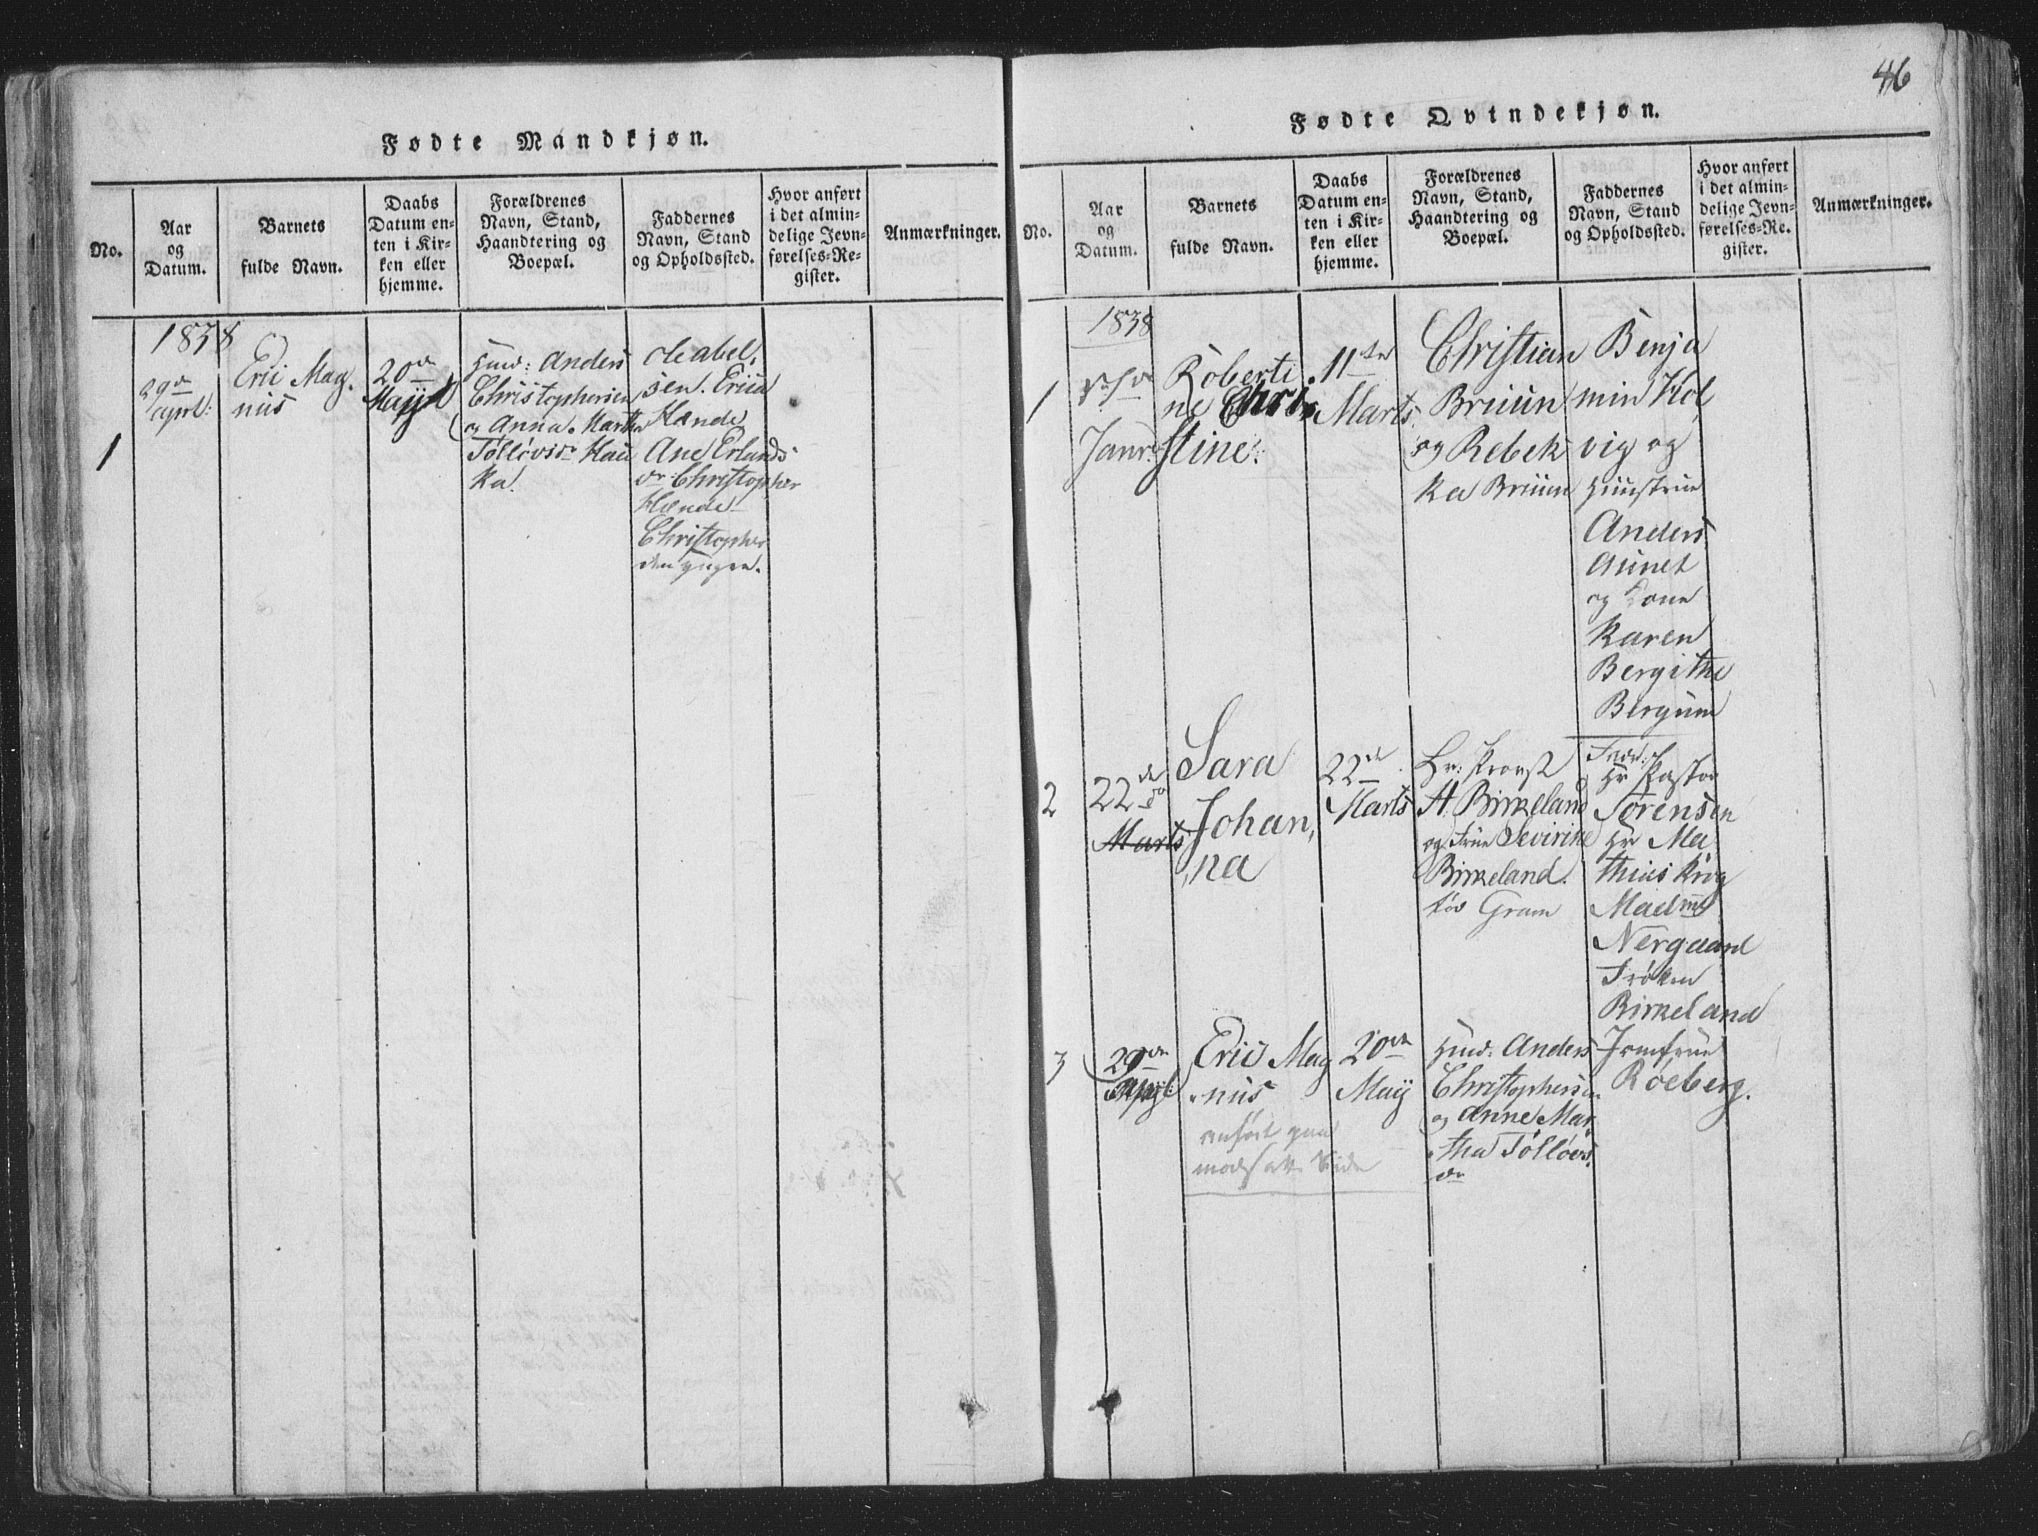 46
Fødte Mandkjøn.
No.
Aar
og
Datum.
Barnets
fulde Navn.
Daabs
Datum en-
ten i Kir-
ken eller
hjemme.
Forældrenes
Navn, Stand,
Haandtering og
Boepæl.
Faddernes
Navn, Stand
og Opholdssted.
Hvor anført
i det almin-
delige Jevn-
førelses-Re-
gister.
Anmærkninger.
1838
1
29de
april:
Eric Mag-
nus
20de
Maij
Anders
Christophersen
og Anna Martha
Ole abel-
sen. Erica
Hænde
Ane Erlands
dr Christopher
Hænde
Christopher
den yngre.
Fødte Qvindekjøn.
No.
Aar
og
Datum.
Barnets
fulde Navn.
Daabs
Datum en-
ten i Kir-
ken eller
hjemme.
Forældrenes
Navn, Stand,
Haandtering og
Boepæl.
Faddernes
Navn, Stand
og Opholdssted.
Hvor anført
i det almin-
delige Jevn-
førelses-Re-
gister.
Anmærkninger.
1838
1
Janr:
Roberti-
ne Chri-
stine.
11te
Marts
Christian
Bruun
og Rebek
ka Bruun
Benja
min Kol
vig og
Hustrue
Anders
Aunet
og Kone
Karen
Bergithe
Bergum
2
22de
Marts
Sara
Johan-
na
22de
Marts
Hr: Provst
A. Birkeland
og Frue Sevirine
Birkeland.
født Gram
Hr Pastor
Sørensen
Hr Ma
thias Krog
Madme
Nergaard
Frøken
Birkeland
Jomfrue
Roeberg.
3
29de
April
Eric Mag
nus
anført paa
modsatte Side
20de
Maij
Anders
Christophersen
og Anne Mar
tha Tølløvs
dr